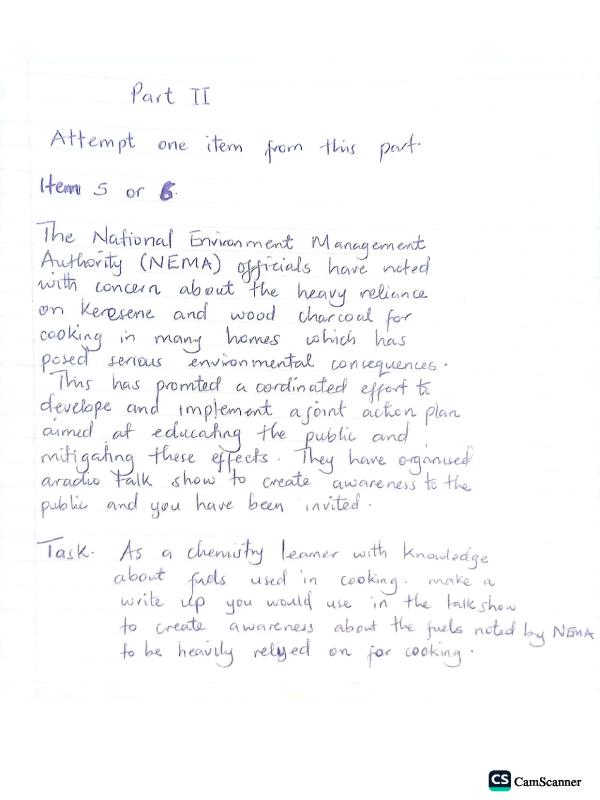 Part II
Attempt one item from this part.
Item 5 or 6.
The National Environment Management
Authority (NEMA) officials have noted
with concern about the heavy reliance
on Keresene and wood charcoal for
cooking in many homes which has
posed serious environmental consequences.
This has promted a cordinated effort to
develope and implement a joint action plan
aimed at educating the public and
mitigating these effects. They have organised
a radio talk show to create awareness to the
public and you have been invited.
Task. As a chemistry learner with knowledge
about fuels used in cooking. make a
write up you would use in the talkshow
to create awareness about the fuels noted by NEMA
to be heavily relyed on for cooking.
CS CamScanner